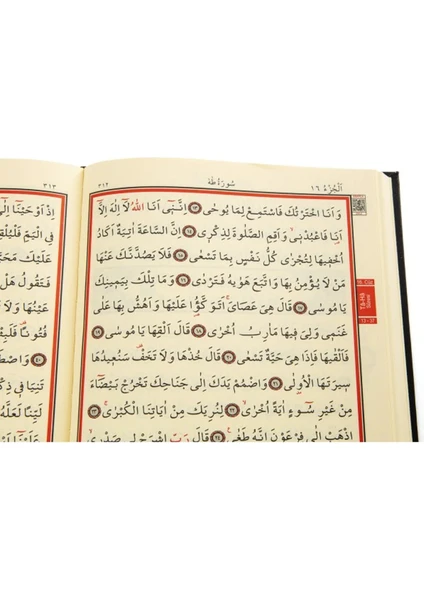 اَلْجُزْءُ ١٦
سُورَةُ طٰهٰ
٣١٢
وَاَنَا اخْتَرْتُكَ فَاسْتَمِعْ لِمَا يُوحٰى ﴿١٣﴾ اِنَّنٖى اَنَا اللّٰهُ لَٓا اِلٰهَ اِلَّٓا
اَنَا فَاعْبُدْنٖى وَاَقِمِ الصَّلٰوةَ لِذِكْرٖى ﴿١٤﴾ اِنَّ السَّاعَةَ اٰتِيَةٌ اَكَادُ
اُخْفٖيهَا لِتُجْزٰى كُلُّ نَفْسٍ بِمَا تَسْعٰى ﴿١٥﴾ فَلَا يَصُدَّنَّكَ عَنْهَا
مَنْ لَا يُؤْمِنُ بِهَا وَاتَّبَعَ هَوٰيهُ فَتَرْدٰى ﴿١٦﴾ وَمَا تِلْكَ بِيَمٖينِكَ
يَا مُوسٰى ﴿١٧﴾ قَالَ هِىَ عَصَاىَ اَتَوَكَّؤُا عَلَيْهَا وَاَهُشُّ بِهَا عَلٰى
غَنَمٖى وَلِىَ فٖيهَا مَاٰرِبُ اُخْرٰى ﴿١٨﴾ قَالَ اَلْقِهَا يَا مُوسٰى ﴿١٩﴾
فَاَلْقٰيهَا فَاِذَا هِىَ حَيَّةٌ تَسْعٰى ﴿٢٠﴾ قَالَ خُذْهَا وَلَا تَخَفْ سَنُعٖيدُهَا
سٖيرَتَهَا الْاُولٰى ﴿٢١﴾ وَاضْمُمْ يَدَكَ اِلٰى جَنَاحِكَ تَخْرُجْ بَيْضَٓاءَ
مِنْ غَيْرِ سُٓوءٍ اٰيَةً اُخْرٰى ﴿٢٢﴾ لِنُرِيَكَ مِنْ اٰيَاتِنَا الْكُبْرٰى ﴿٢٣﴾
اِذْهَبْ اِلٰى فِرْعَوْنَ اِنَّهُ طَغٰى ﴿٢٤﴾ قَالَ رَبِّ اشْرَحْ لٖى صَدْرٖى
16. Cüz
Tâ-Hâ
Sûresi
٣١٣
اِذْ اَوْحَيْنَٓا اِلٰٓى
فِى الْيَمِّ فَلْيُلْقِهِ
عَلَيْكَ مَحَبَّةً
فَتَقُولُ هَلْ
عَيْنُهَا وَلَا
فُتُونًا فَلَبِثْتَ
﴿٤٠﴾ وَاصْطَنَعْتُكَ
تَنِيَا فٖى ذِكْرٖى
لَيِّنًا لَعَلَّهُ
عَلَيْنَٓا